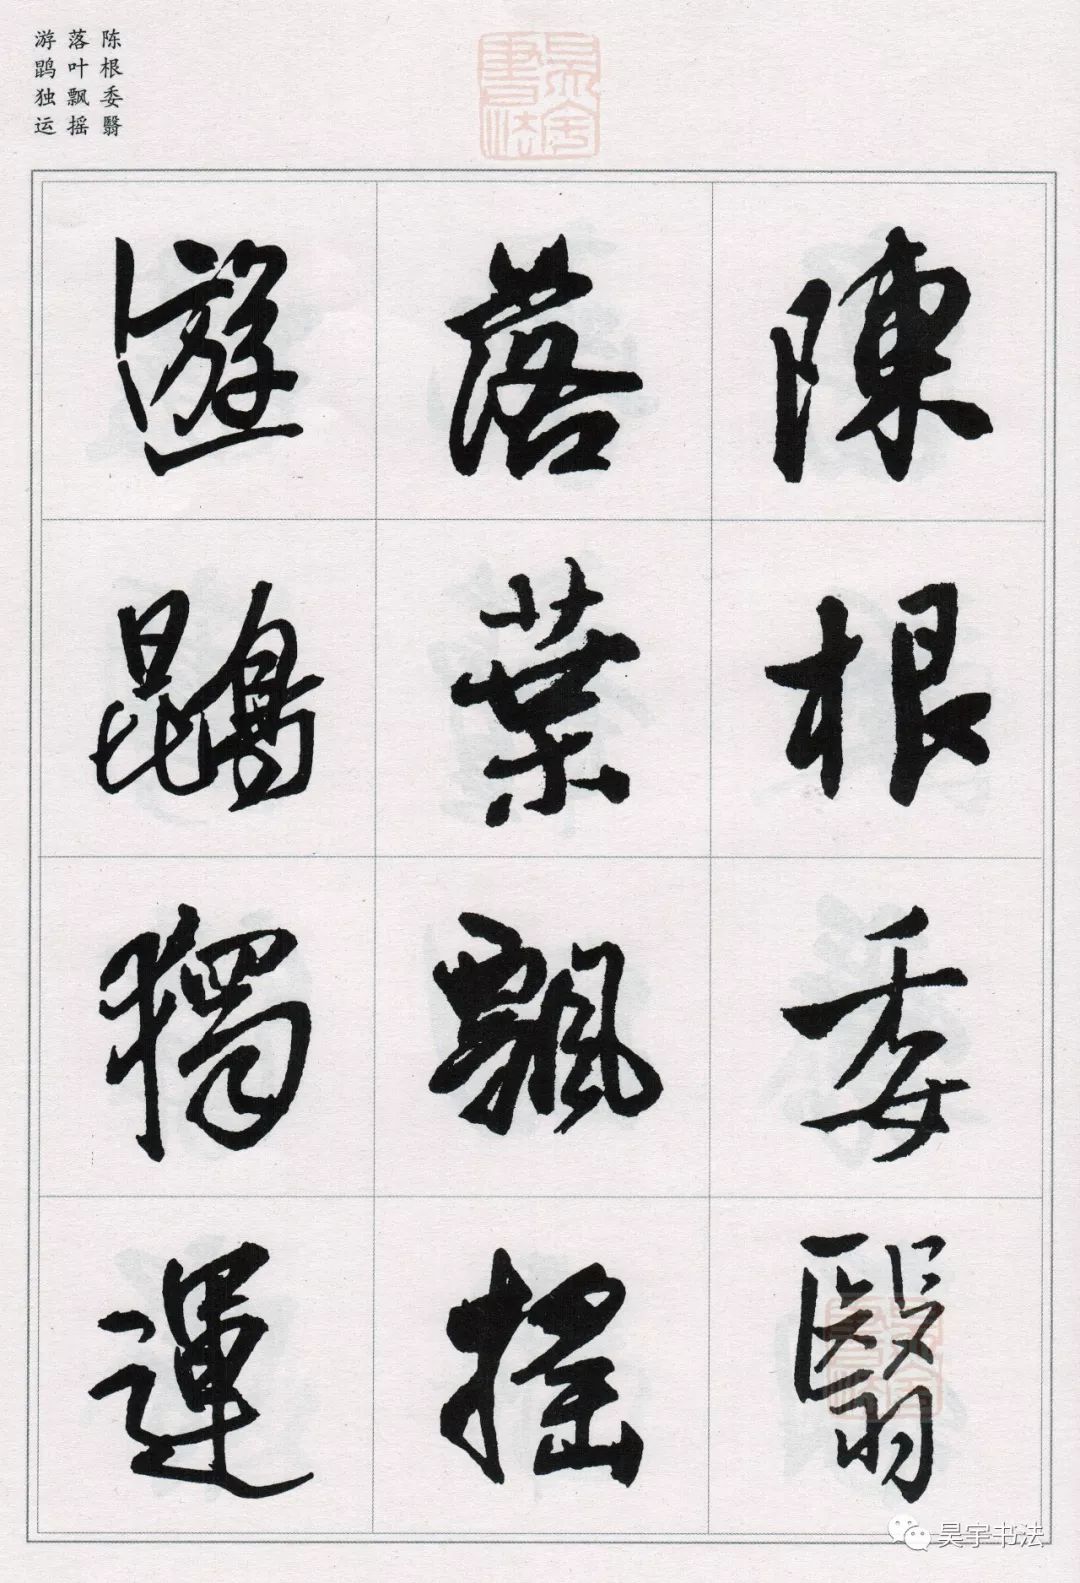 陈根委翳
落叶飘摇
游鹍独运
昊宇書法
陳根委翳
落葉飄摇
遊鵾獨運
昊宇书法